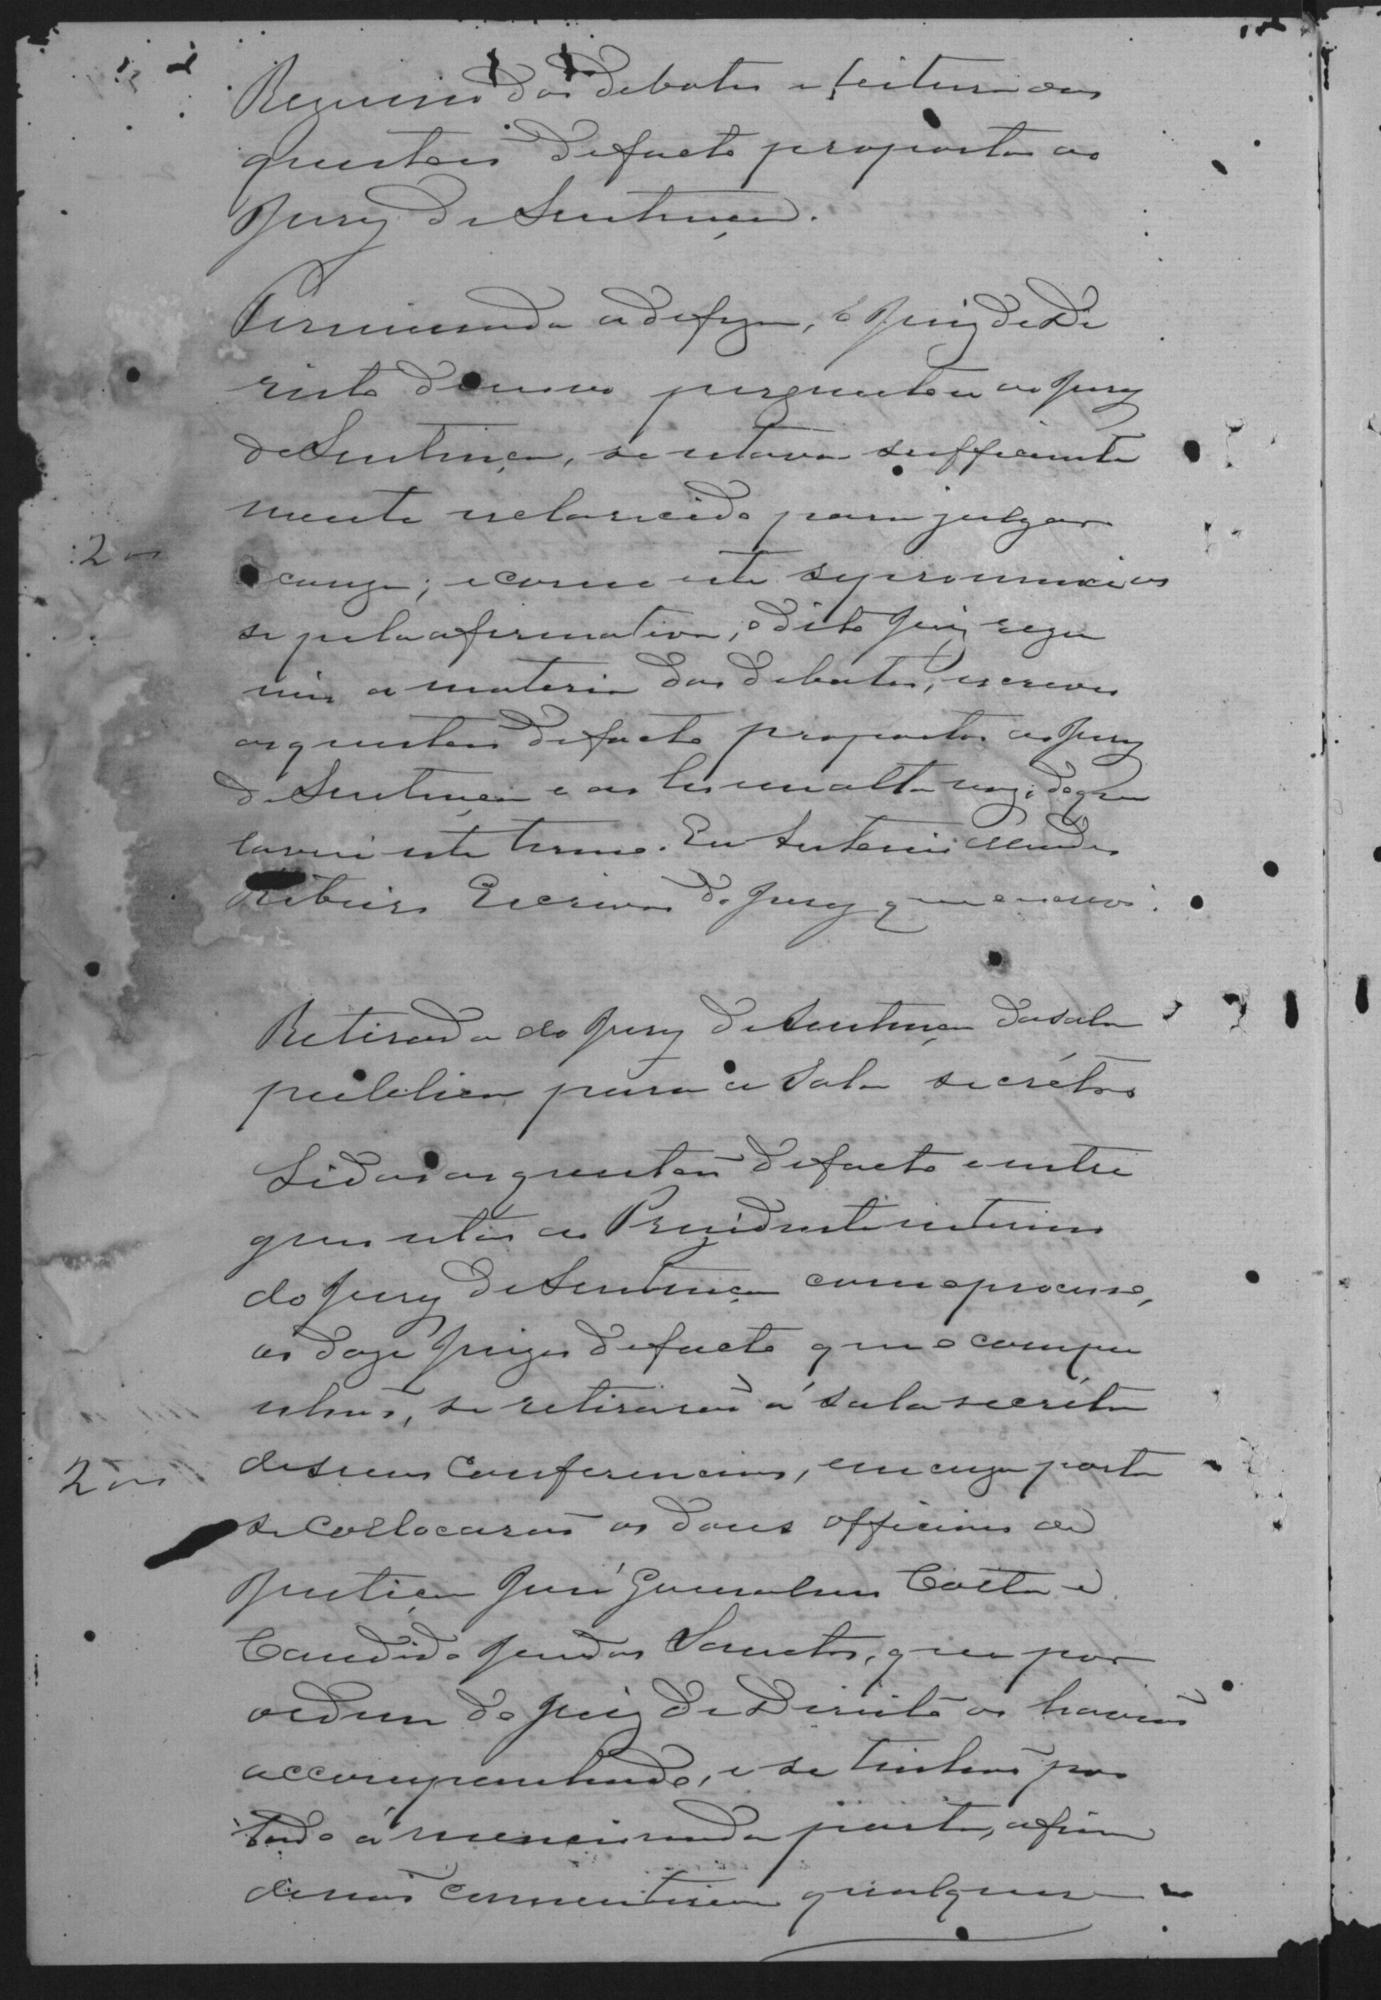 Resumo dos debates e leitura das
questões de facto propostas ao
Jury de Sentença.
Terminada a defeza, o Juiz de Di
reito de novo perguntou ao Jury
de Sentença, se estava sufficiente
mente esclarecido para julgar
a cauza; e como este se pronuncias
se pela afirmativa, o dito Juiz rezu
mio a materia dos debates, escreveo
as questões de facto propostas ao Jury
de Sentença e as leu em alta voz; do que
lavrei este termo. Eu Antonio Mendes
Ribeiro Escrivão do Jury que escrevi.
2
Retirada do Jury de Sentença da sala
publica para a sala secréta
Lidas as questões de facto e entre
gues estas ao Prezidente interino
do Jury de Sentença com o processo,
os doze Juizes de facto que o compu
nhão, se retirarão á sala secréta
de suas conferencias, em cuja porta
se collocarão os dous officiaes de
Justiça José Gonsalves Costa e
Candido José dos Santos, que por
ordem do Juiz de Direito os havião
accompanhado, e se tinhão pos
tado á mencionada porta, a fim
de não consentirem qualquer
2